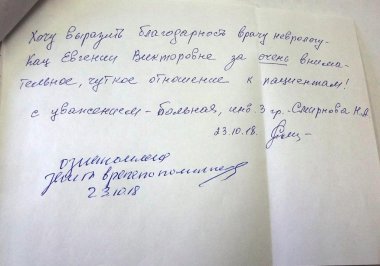 Хочу выразить благодарность врачу неврологу-
Кац Евгении Викторовне за очень внима-
тельное, чуткое отношение к пациентам!
с уважением - Больная, инв. 3 гр. Смирнова Н.А.
23.10.18.
ознакомлена
23.10.18